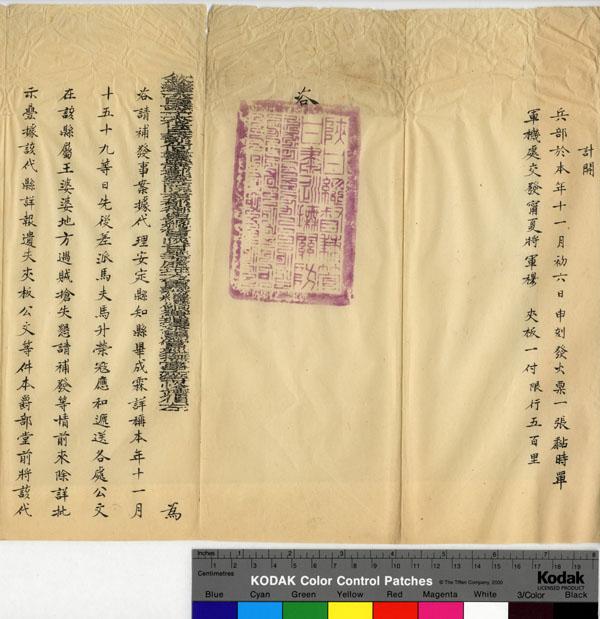 計開
兵部於本年十一月初六日申刻發火票一張黏時單
軍機處交發甯夏將軍穆 夾板一付限行五百里
咨
為
咨請補發事案據代理安定縣知縣畢成霖詳稱本年十一月
十五十九等日先後差派馬夫馬升榮寇應和遞送各處公文
在該縣屬王婆婆地方遇賊搶失懇請補發等情前來除詳批
示疊據該代縣詳報遺失夾板公文等件本爵部堂前將該代
Inches 1 2 3 4 5 6 7 8
Centimetres 1 2 3 4 5 6 7 8 9 10 11 12 13 14 15 16 17 18 19
KODAK Color Control Patches © The Tiffen Company, 2000 Kodak
LICENSED PRODUCT
Blue Cyan Green Yellow Red Magenta White 3/Color Black